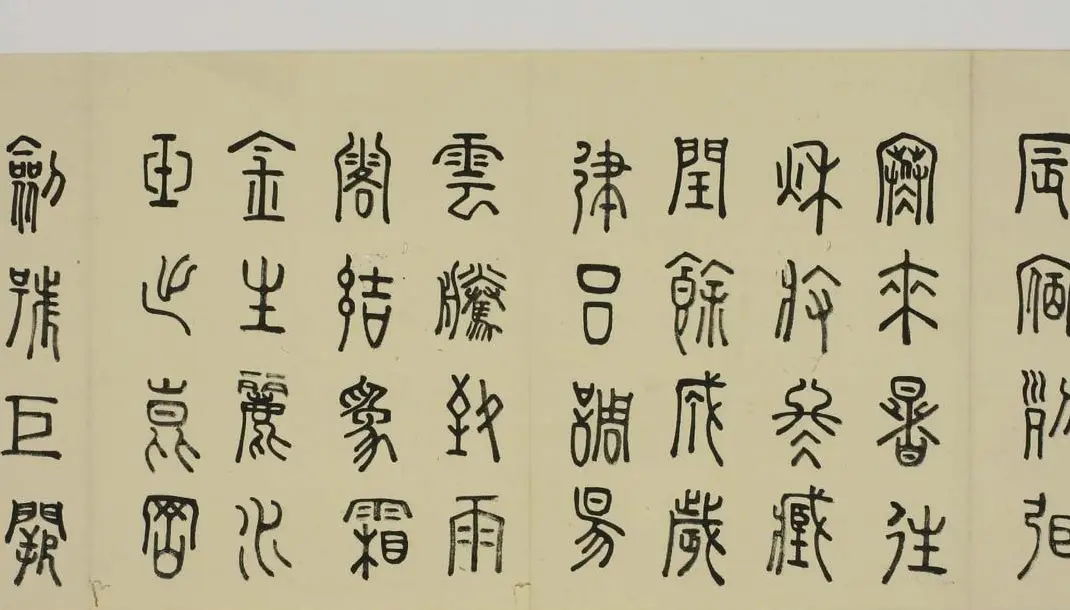 辰宿列張
寒來暑往
秋收冬藏
閏餘成歲
律呂調昜
雲騰致雨
露結為霜
金生麗水
玉出崑岡
劍號巨闕